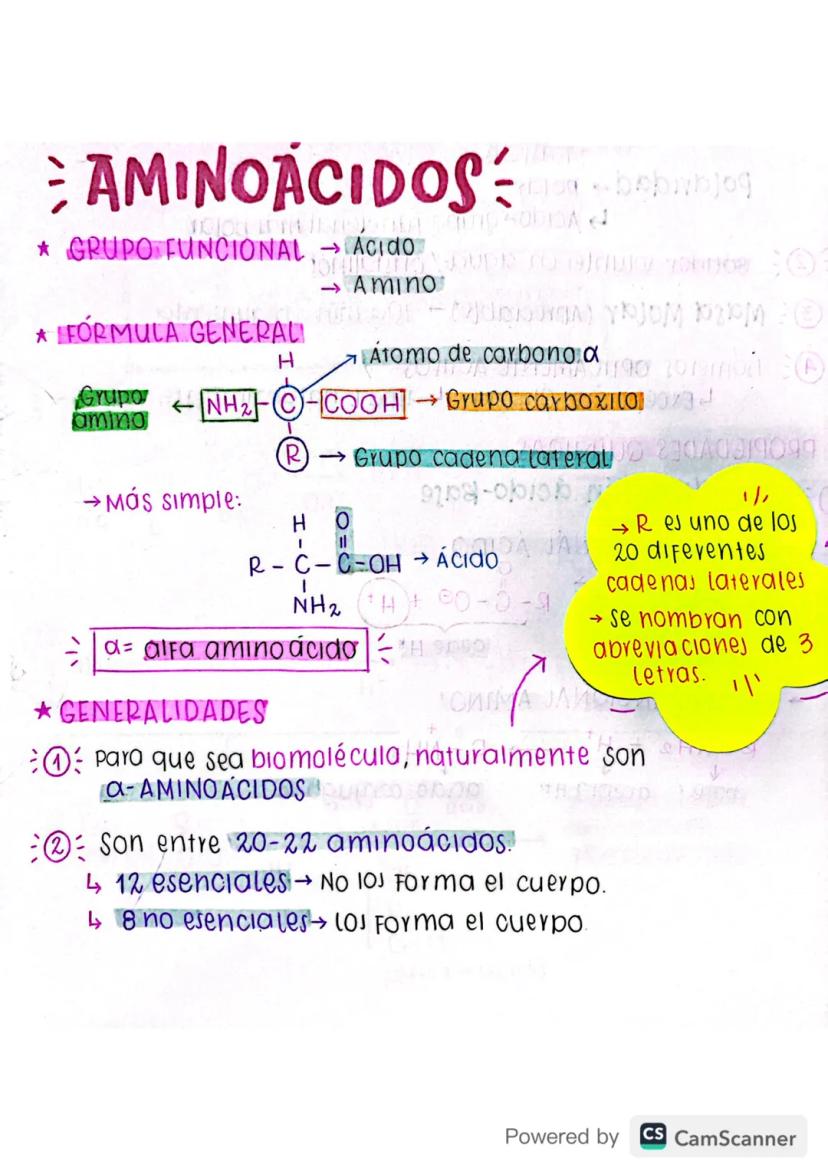 AMINOÁCIDOS
★ GRUPO FUNCIONAL → Ácido
→ Amino
★ FÓRMULA GENERAL
H
Átomo de carbono α
Grupo amino ← NH2 - C - COOH → Grupo carboxilo
R → Grupo cadena lateral
→ Más simple:
H O
R - C - C - OH → Ácido
NH2
α = alfa aminoácido
→ R es uno de los
20 diferentes
cadenas laterales
→ se nombran con
abreviaciones de 3
letras.
★ GENERALIDADES
① Para que sea biomolécula, naturalmente son
α-AMINOÁCIDOS
② Son entre 20-22 aminoácidos.
↳ 12 esenciales → No los forma el cuerpo.
↳ 8 no esenciales → Los forma el cuerpo.
Powered by CS CamScanner